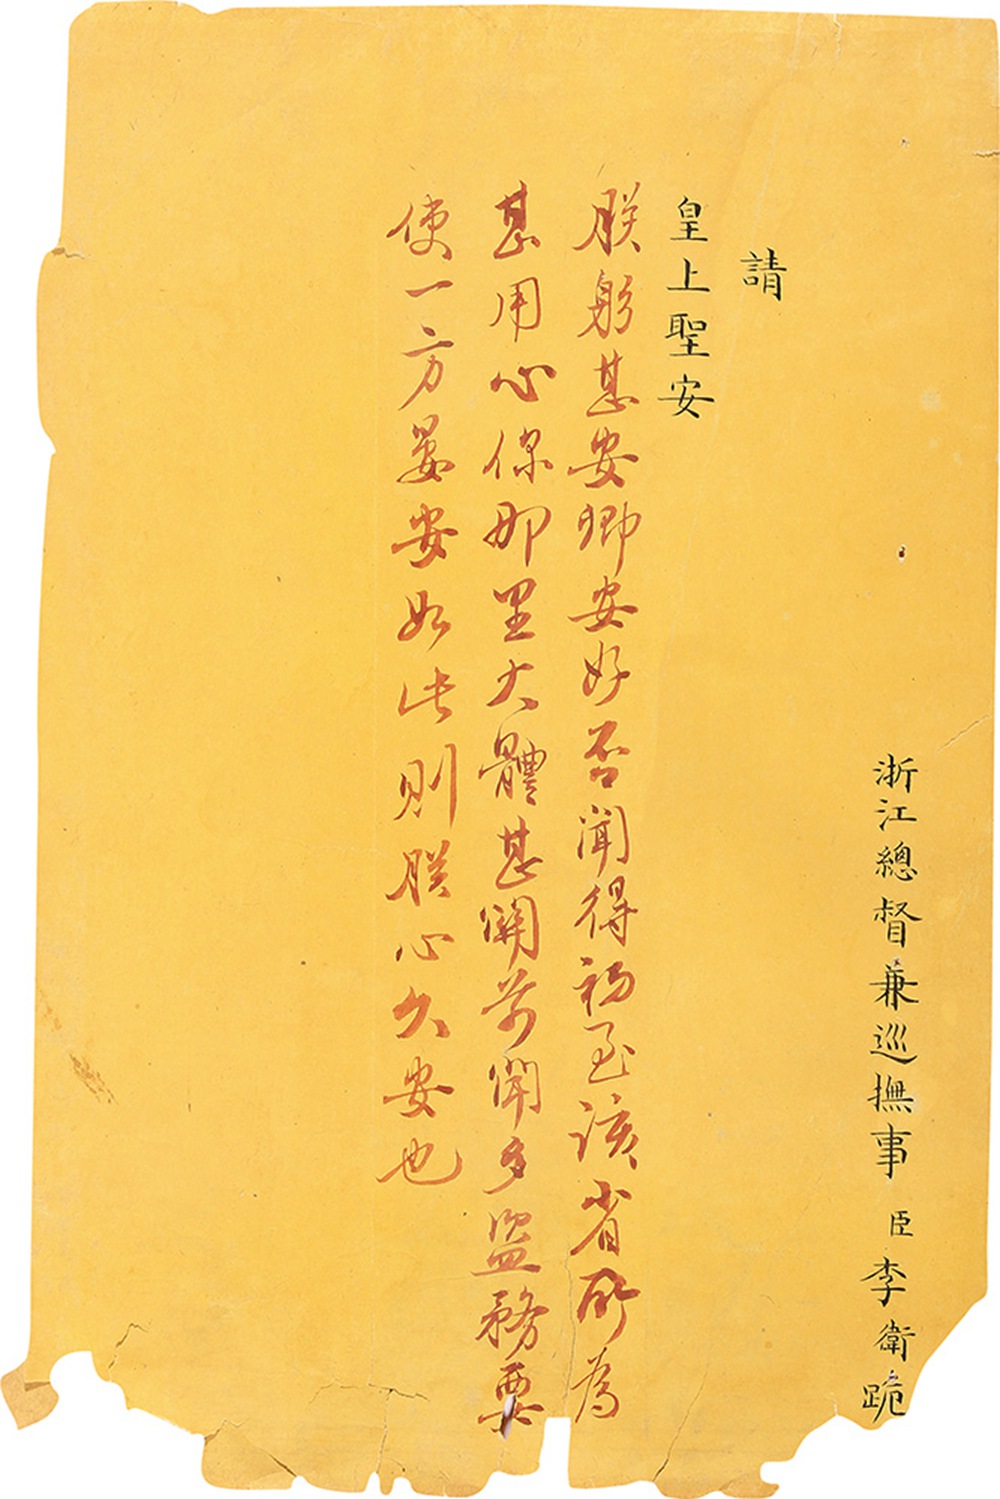 浙江總督兼巡撫事臣李衛跪
請
皇上聖安
朕躬甚安卿安好否聞得初至該省所為
甚用心保那里大體甚關前聞多盜務要
使一方晏安如此則朕心久安也